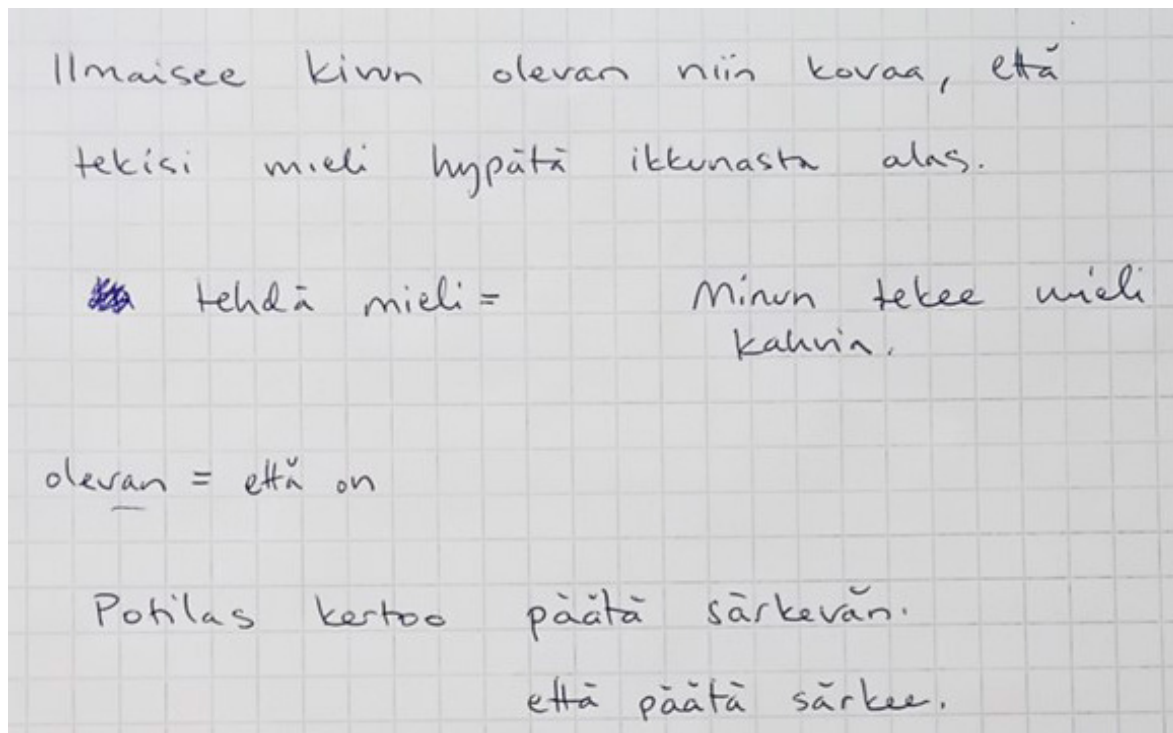 Ilmaisee kivun olevan niin kovaa, että
tekisi mieli hypätä ikkunasta alas.
tehdä mieli = Minun tekee mieli
kahvia.
olevan = että on
Potilas kertoo päätä särkevän.
että päätä särkee.